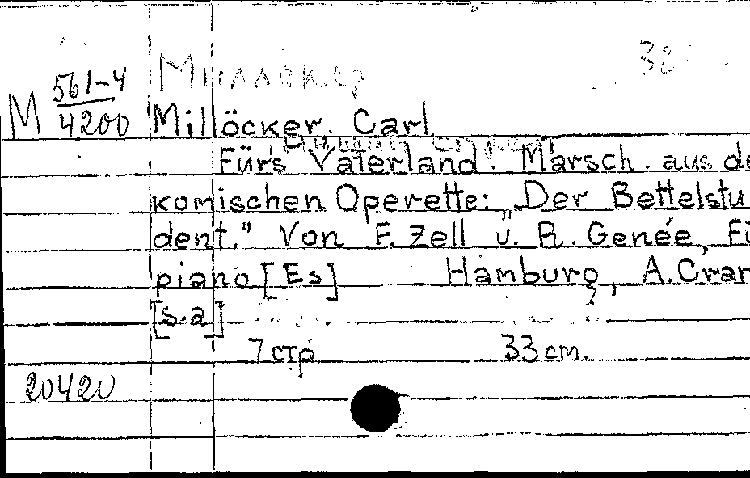 Миллёкер
M 561-4
4200
Millöcker, Carl
Für's Vaterland. Marsch. aus de
komischen Operette: „Der Bettelstu
dent." Von F. Zell u. R. Genée, Fü
piano [Es] Hamburg, A. Cran
[s.a]
7 стр 33 cm.
20420